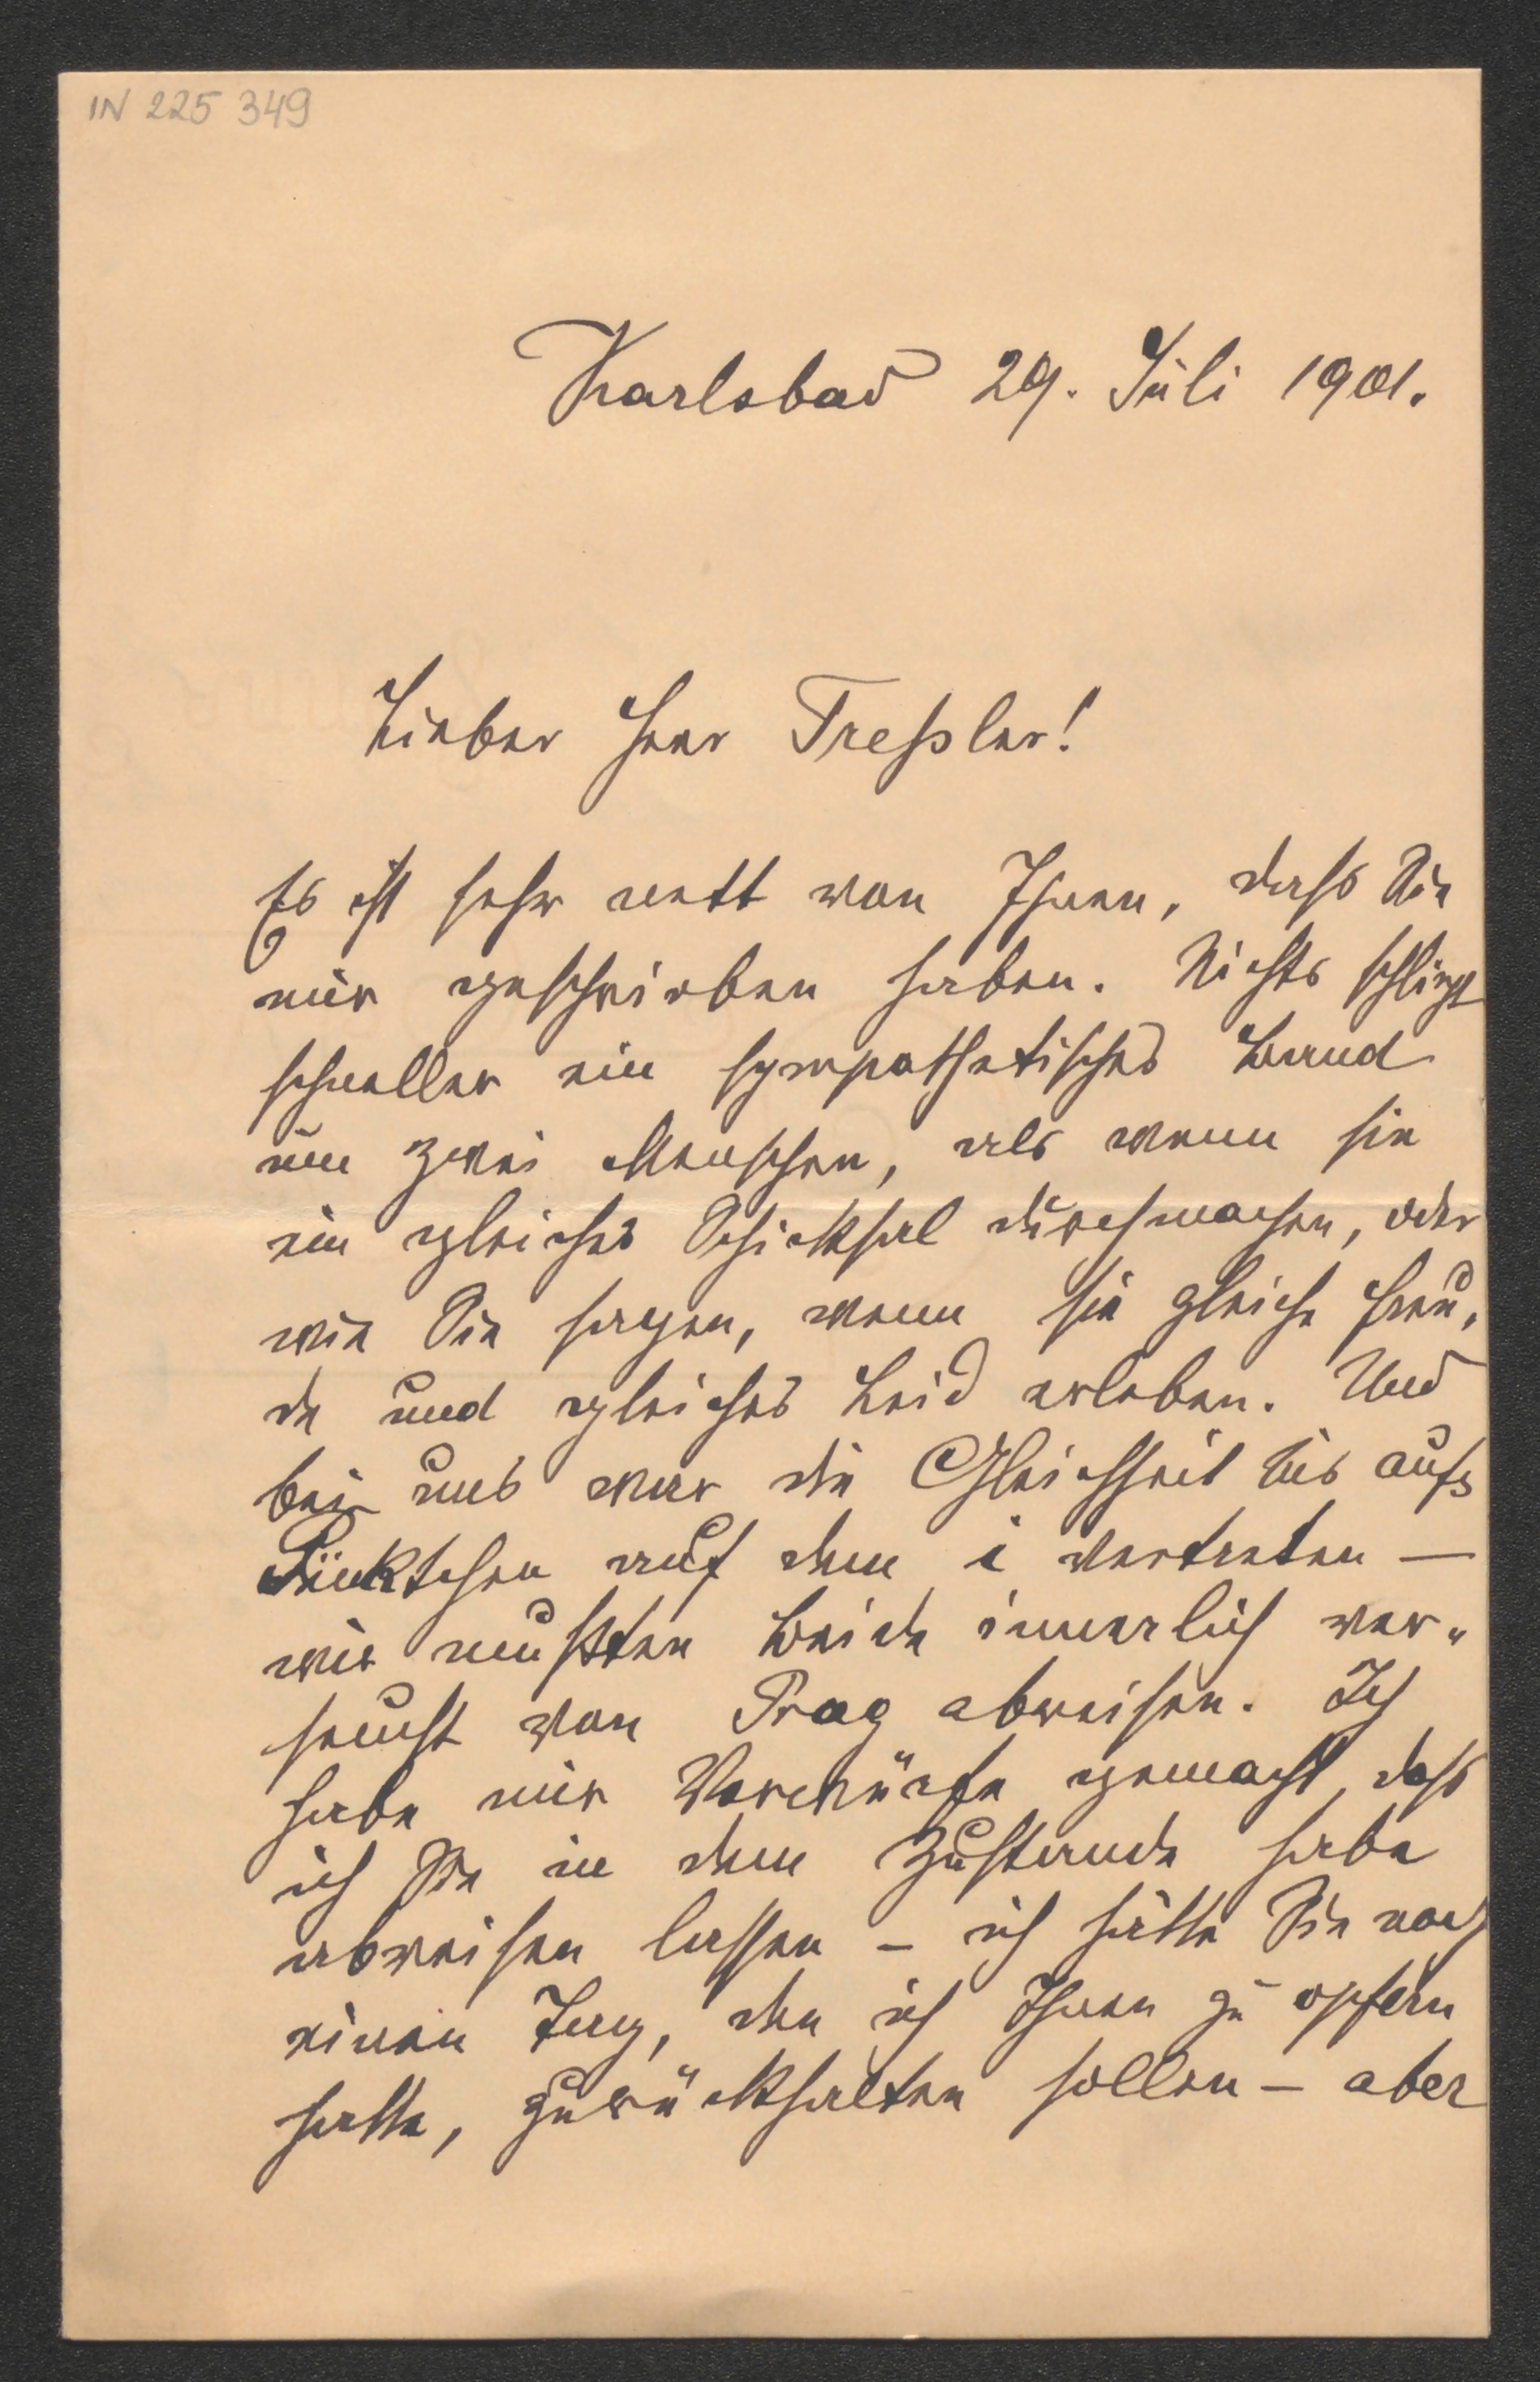 IN 225 349
Karlsbad 29. Juli 1901.
Lieber Herr Treßler!
Es ist sehr nett von Ihnen, dass Sie
mir geschrieben haben. Nichts schlingt
schneller ein sympathetisches Band
um zwei Menschen, als wenn sie
ein gleiches Schicksal durchmachen, oder
wie Sie sagen, wenn sie gleiche Freu-
de und gleiches Leid erleben. Und
bei uns war die Gleichheit bis aufs
Pünktchen auf dem i vertreten —
wir mußten Beide innerlich
von Prag abreisen. Ich
habe mir Vorwürfe gemacht, dass
ich Sie in dem Zustande habe
abreisen lassen – ich hätte Sie noch
einen Tag, den ich Ihnen zu opfern
hatte, zurückhalten sollen – aber